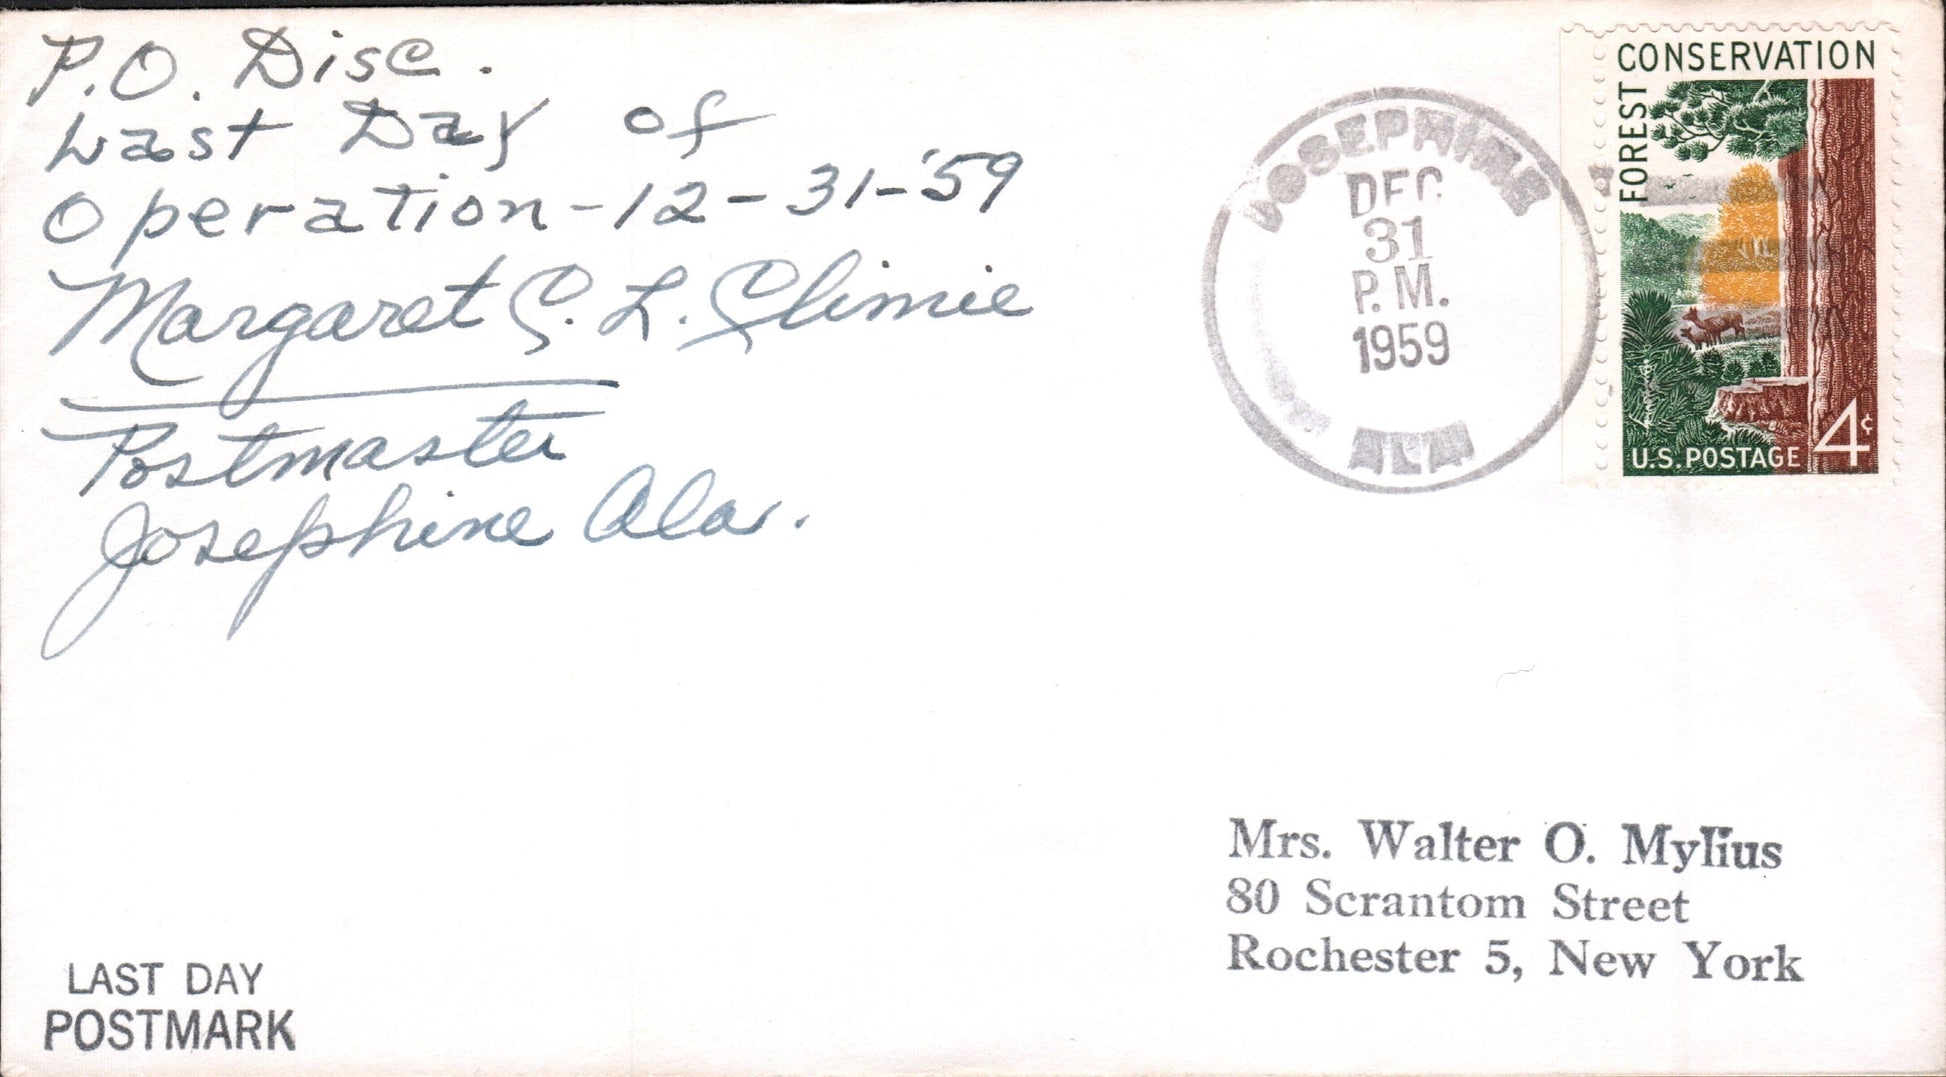 P.O. Disc.
Last Day of
Operation - 12 - 31 - '59
Margaret C. L. Climie
Postmaster
Josephine Ala.
JOSEPHINE
DEC
31
P. M.
1959
ALA
FOREST CONSERVATION
U.S. POSTAGE 4¢
Mrs. Walter O. Mylius
80 Scrantom Street
Rochester 5, New York
LAST DAY
POSTMARK